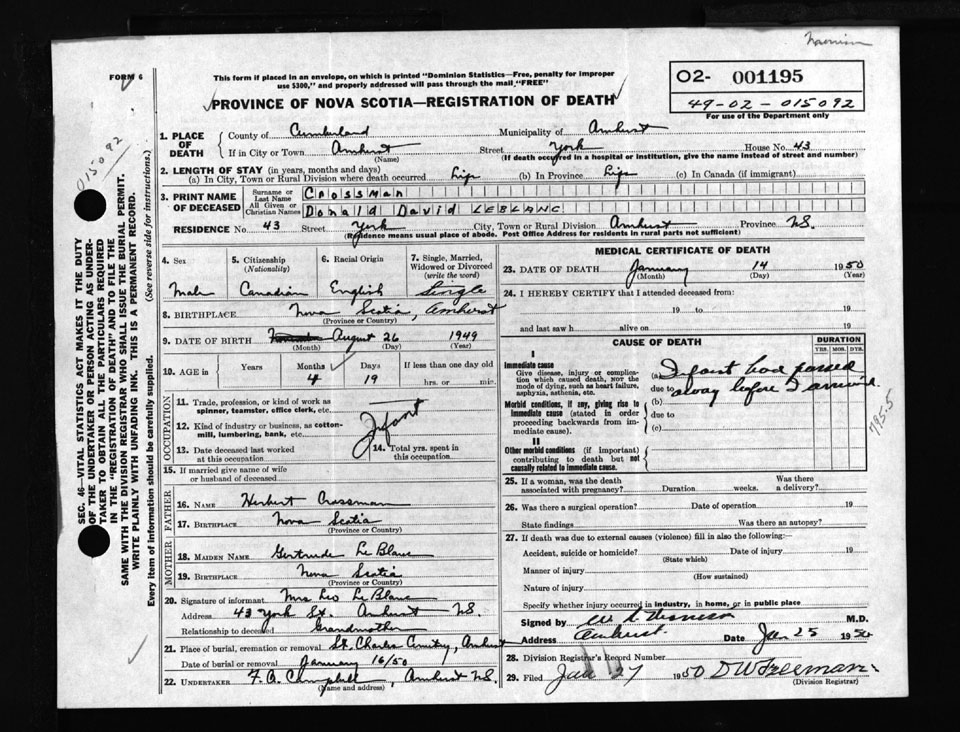 FORM 6
This form if placed in an envelope, on which is printed "Dominion Statistics—Free, penalty for improper
use $300," and properly addressed will pass through the mail "FREE"
PROVINCE OF NOVA SCOTIA—REGISTRATION OF DEATH
02- 001195
49-02-015092
For use of the Department only
015092
SEC. 46—VITAL STATISTICS ACT MAKES IT THE DUTY
OF THE UNDERTAKER OR PERSON ACTING AS UNDER-
TAKER TO OBTAIN ALL THE PARTICULARS REQUIRED
IN THE "REGISTRATION OF DEATH" AND TO FILE THE
SAME WITH THE DIVISION REGISTRAR WHO SHALL ISSUE THE BURIAL PERMIT.
WRITE PLAINLY WITH UNFADING INK. THIS IS A PERMANENT RECORD.
Every item of information should be carefully supplied. (See reverse side for instructions.)
1. PLACE OF DEATH
County of Cumberland Municipality of Amherst
If in City or Town Amherst Street York House No. 43
(Name) (If death occurred in a hospital or institution, give the name instead of street and number)
2. LENGTH OF STAY (in years, months and days)
(a) In City, Town or Rural Division where death occurred Life (b) In Province Life (c) In Canada (if immigrant)
3. PRINT NAME OF DECEASED
Surname or Last Name Crossman
All Given or Christian Names Donald David LEBLANC
RESIDENCE No. 43 Street York City, Town or Rural Division Amherst Province N.S.
(Residence means usual place of abode. Post Office Address for residents in rural parts not sufficient)
4. Sex Male
5. Citizenship (Nationality) Canadian
6. Racial Origin English
7. Single, Married, Widowed or Divorced (write the word) Single
8. BIRTHPLACE Nova Scotia, Amherst
(Province or Country)
9. DATE OF BIRTH August 26 1949
(Month) (Day) (Year)
10. AGE in Years Months Days If less than one day old
4 19 hrs. or min.
OCCUPATION
11. Trade, profession, or kind of work as
spinner, teamster, office clerk, etc.
12. Kind of industry or business, as cotton-
mill, lumbering, bank, etc.
Infant
13. Date deceased last worked
at this occupation
14. Total yrs. spent in
this occupation
15. If married give name of wife
or husband of deceased
FATHER
16. NAME Herbert Crossman
17. BIRTHPLACE Nova Scotia
(Province or Country)
MOTHER
18. MAIDEN NAME Gertrude Le Blanc
19. BIRTHPLACE Nova Scotia
(Province or Country)
20. Signature of informant Mrs Leo Le Blanc
Address 43 York St. Amherst N.S.
Relationship to deceased Grandmother
21. Place of burial, cremation or removal St. Charles Cemetry, Amherst
Date of burial or removal January 16/50
22. UNDERTAKER F. A. Campbell, Amherst N.S.
(Name and address)
MEDICAL CERTIFICATE OF DEATH
23. DATE OF DEATH January 14 1950
(Month) (Day) (Year)
24. I HEREBY CERTIFY that I attended deceased from:
19 to 19
and last saw h alive on 19
CAUSE OF DEATH
DURATION
YRS. MOS. DYS.
I
Immediate cause
Give disease, injury or complica-
tion which caused death, NOT the
mode of dying, such as heart failure,
asphyxia, asthenia, etc.
(a) Infant had passed
due to away before I arrived.
Morbid conditions, if any, giving rise to
immediate cause (stated in order
proceeding backwards from im-
mediate cause).
(b)
due to
(c)
795.5
II
Other morbid conditions (if important)
contributing to death but not
causally related to immediate cause.
25. If a woman, was the death
associated with pregnancy? Duration weeks. Was there
a delivery?
26. Was there a surgical operation? Date of operation 19
State findings Was there an autopsy?
27. If death was due to external causes (violence) fill in also the following:—
Accident, suicide or homicide? Date of injury 19
(State which)
Manner of injury
(How sustained)
Nature of injury
Specify whether injury occurred in industry, in home, or in public place
Signed by M.D.
Address Amherst. Date Jan 25 1950
28. Division Registrar's Record Number
29. Filed Jan 27 1950 D W Freeman.
(Division Registrar)